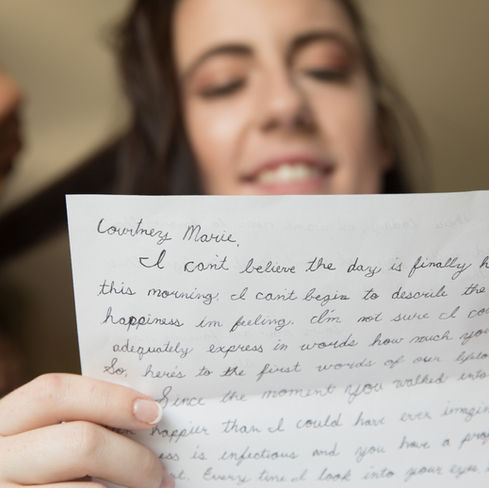 Courtney Marie,
I can't believe the day is finally h
this morning. I can't begin to describe the
happiness im feeling. I'm not sure I co
adequately express in words how much you
So, here's to the first words of our
Since the moment you walked into
happier than I could have ever imagin
is infectious and you have a
Every time I look into your eyes,